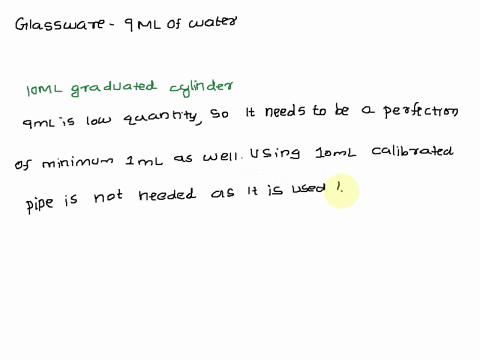 Glassware - 9 ML of water
10ML graduated cylinder
9mL is low quantity, so it needs to be a perfection
of minimum 1mL as well. Using 10mL calibrated
pipe is not needed as it is used